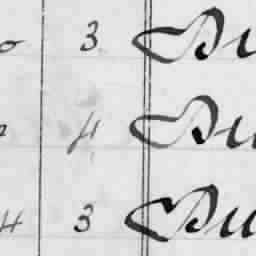 0 3 Du
4 Du
4 3 Du